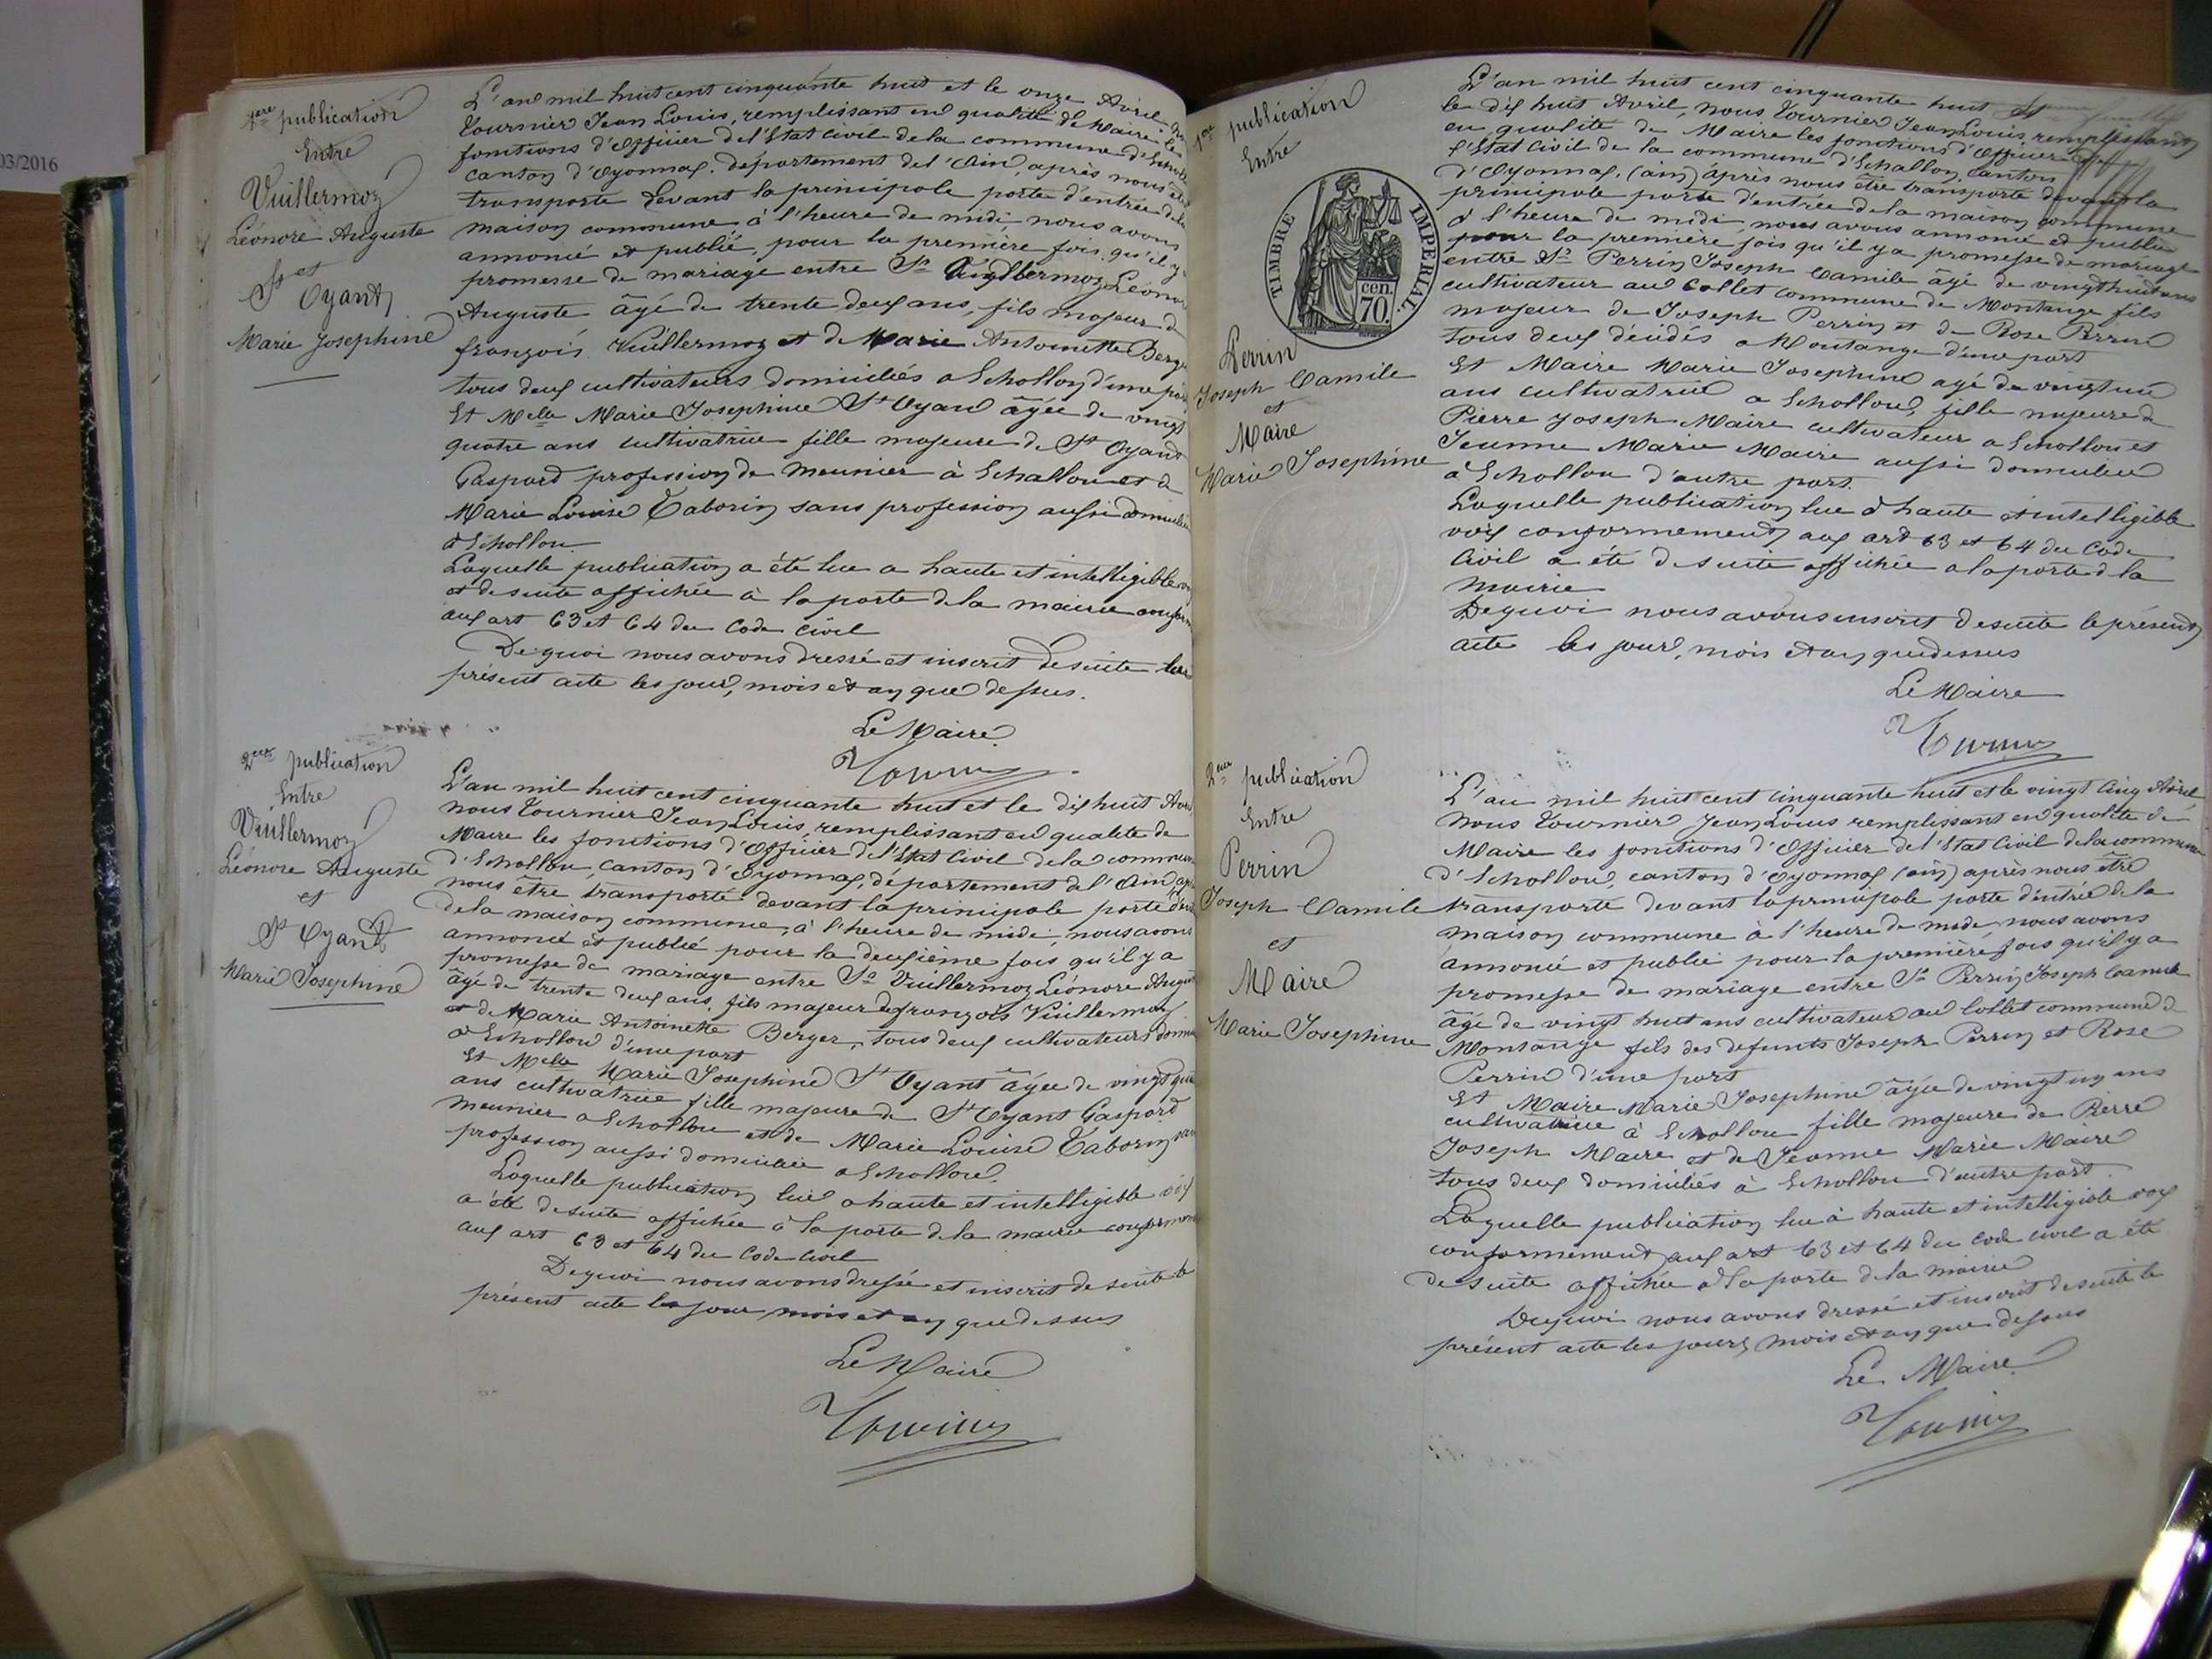 03/2016
1ere publication
Entre
Vuillermoz
Léonore Auguste
et
St Oyant
Marie Josephine
L'an mil huit cent cinquante huit et le onze Avril
Tournier Jean Louis, remplissant en qualité de Maire les
fonctions d'officier de l'Etat civil de la commune d'
canton d'Oyonnax, département de l'Ain, après nous être
transporté devant la principale porte d'entrée de la
maison commune à l'heure de midi, nous avons
annoncé et publié, pour la première fois qu'il y
promesse de mariage entre Sr Vuillermoz Léonor
Auguste âgé de trente deux ans, fils majeur de
françois Vuillermoz et de Marie Antoinette Berger
tous deux cultivateurs domiciliés a Echallon d'une part
Et Melle Marie Josephine St Oyant âgée de vingt
quatre ans cultivatrice fille majeure de St Oyant
Gaspard profession de meunier à Echallon et de
Marie Louise Taborin sans profession aussi
à Echallon
Laquelle publication a été lue a haute et intelligible
et de suite affichée à la porte de la mairie
aux art 63 et 64 du Code Civil
De quoi nous avons dressé et inscrit de suite
présent acte les jour, mois et an que dessus.
Le Maire
Tournier
2eme publication
Entre
Vuillermoz
Léonore Auguste
et
St Oyant
Marie Josephine
L'an mil huit cent cinquante huit et le dix huit
nous Tournier Jean Louis, remplissant en qualité de
Maire les fonctions d'officier de l'Etat Civil de la commune
d'Echallon, canton d'Oyonnax, département de l'Ain
nous être transporté devant la principale porte
de la maison commune, à l'heure de midi, nous avons
annoncé et publié pour la deuxième fois qu'il y a
promesse de mariage entre Sr Vuillermoz Léonore
âgé de trente deux ans, fils majeur de françois Vuillermoz
et de Marie Antoinette Berger, tous deux cultivateurs
à Echallon d'une part
Et Melle Marie Josephine St Oyant âgée de vingt
ans cultivatrice fille majeure de St Oyant Gaspard
meunier a Echallon et de Marie Louise Taborin
profession aussi domiciliée a Echallon
Laquelle publication lue a haute et intelligible voix
a été de suite affichée à la porte de la mairie
aux art 63 et 64 du Code Civil
De quoi nous avons dressé et inscrit de suite le
présent acte les jour mois et an que dessus
Le Maire
Tournier
1ere publication
Entre
TIMBRE IMPERIAL
70 cen.
Perrin
Joseph Camile
et
Maire
Marie Josephine
L'an mil huit cent cinquante huit et
le dix huit Avril, nous Tournier Jean Louis, remplissant
en qualité de Maire les fonctions d'officier de
l'Etat Civil de la commune d'Echallon, canton
d'Oyonnax, (ain) après nous être transporté devant la
principale porte d'entrée de la maison commune
à l'heure de midi, nous avons annoncé et publié
pour la première fois qu'il y a promesse de mariage
entre Sr Perrin Joseph Camile âgé de vingt huit ans
cultivateur au Collet commune de Montange fils
majeur de Joseph Perrin et de Rose Perrin
tous deux décédés a Montange d'une part
Et Maire Marie Josephine agé de vingt un
ans cultivatrice a Echallon, fille majeure de
Pierre Joseph Maire cultivateur a Echallon et
Jeanne Marie Maire aussi domiciliée
à Echallon d'autre part.
Laquelle publication lue à haute et intelligible
voix conformement aux art 63 et 64 du Code
Civil a été de suite affichée a la porte de la
mairie
De quoi nous avons inscrit de suite le présent
acte les jour, mois et an que dessus
Le Maire
Tournier
2eme publication
Entre
Perrin
Joseph Camile
et
Maire
Marie Josephine
L'an mil huit cent cinquante huit et le vingt cinq Avril,
Nous Tournier Jean Louis remplissant en qualité de
Maire les fonctions d'Officier de l'Etat Civil de la commune
d'Echallon, canton d'Oyonnax (ain) après nous être
transporté devant la principale porte d'entrée de la
maison commune à l'heure de midi, nous avons
annoncé et publié pour la première fois qu'il y a
promesse de mariage entre Sr Perrin Joseph Camile
âgé de vingt huit ans cultivateur au Collet commune de
Montange fils des defunts Joseph Perrin et Rose
Perrin d'une part
Et Maire Marie Josephine âgée de vingt un ans
cultivatrice à Echallon fille majeure de Pierre
Joseph Maire et de Jeanne Marie Maire
tous deux domiciliés à Echallon d'autre part.
Laquelle publication lue à haute et intelligible voix
conformement aux art 63 et 64 du Code civil a été
de suite affichée à la porte de la mairie
De quoi nous avons dressé et inscrit de suite le
présent acte les jours, mois et an que dessus
Le Maire
Tournier